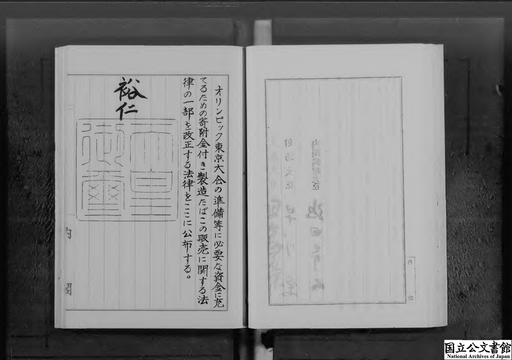 オリンピック東京大会の準備等に必要な資金に充
てるための寄附金付き製造たばこの販売に関する法
律の一部を改正する法律をここに公布する。
裕仁
天皇
御璽
内閣
国立公文書館
National Archives of Japan